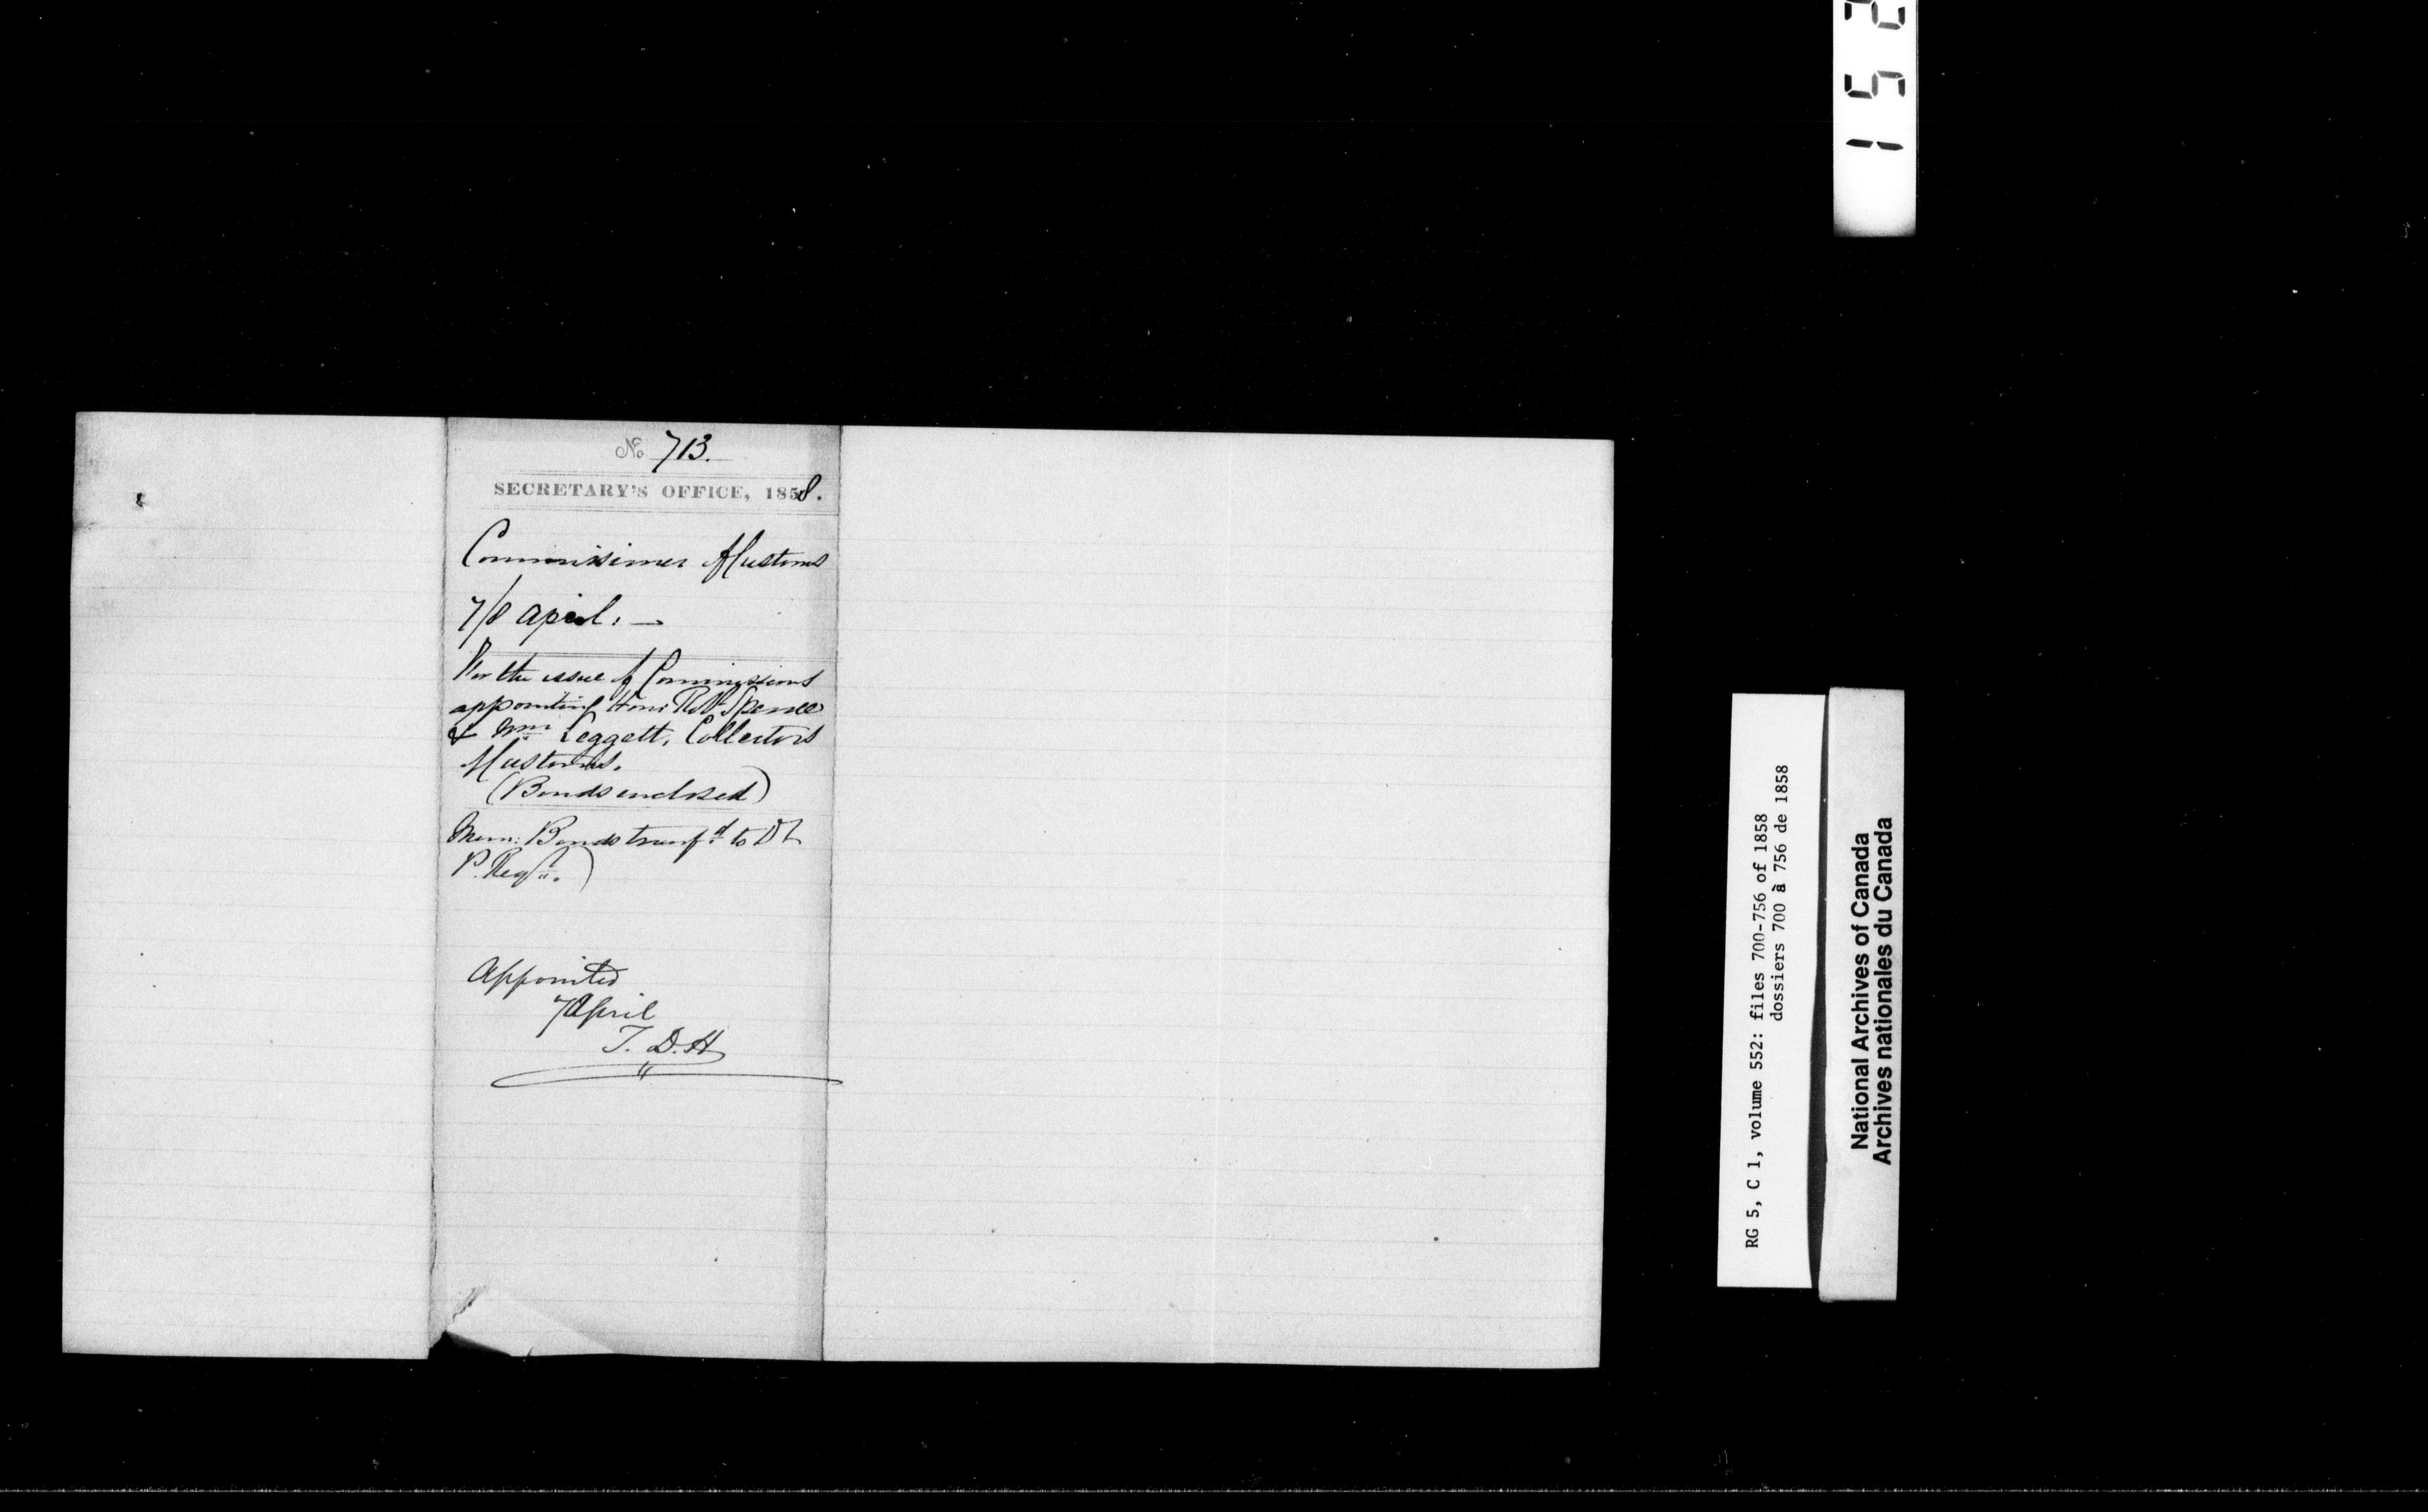 No 713.
SECRETARY'S OFFICE, 1858.
Commissioner of Customs
7/8 April. —
For the issue of Commissions
appointing Hon: Robt Spence
& Wm Leggett, Collectors
of Customs.
(Bonds enclosed)
Mem: Bonds transfd to
P. Regr.)
Appointed
7 April
T. D. H
RG 5, C 1, volume 552: files 700-756 of 1858
dossiers 700 à 756 de 1858
National Archives of Canada
Archives nationales du Canada
152